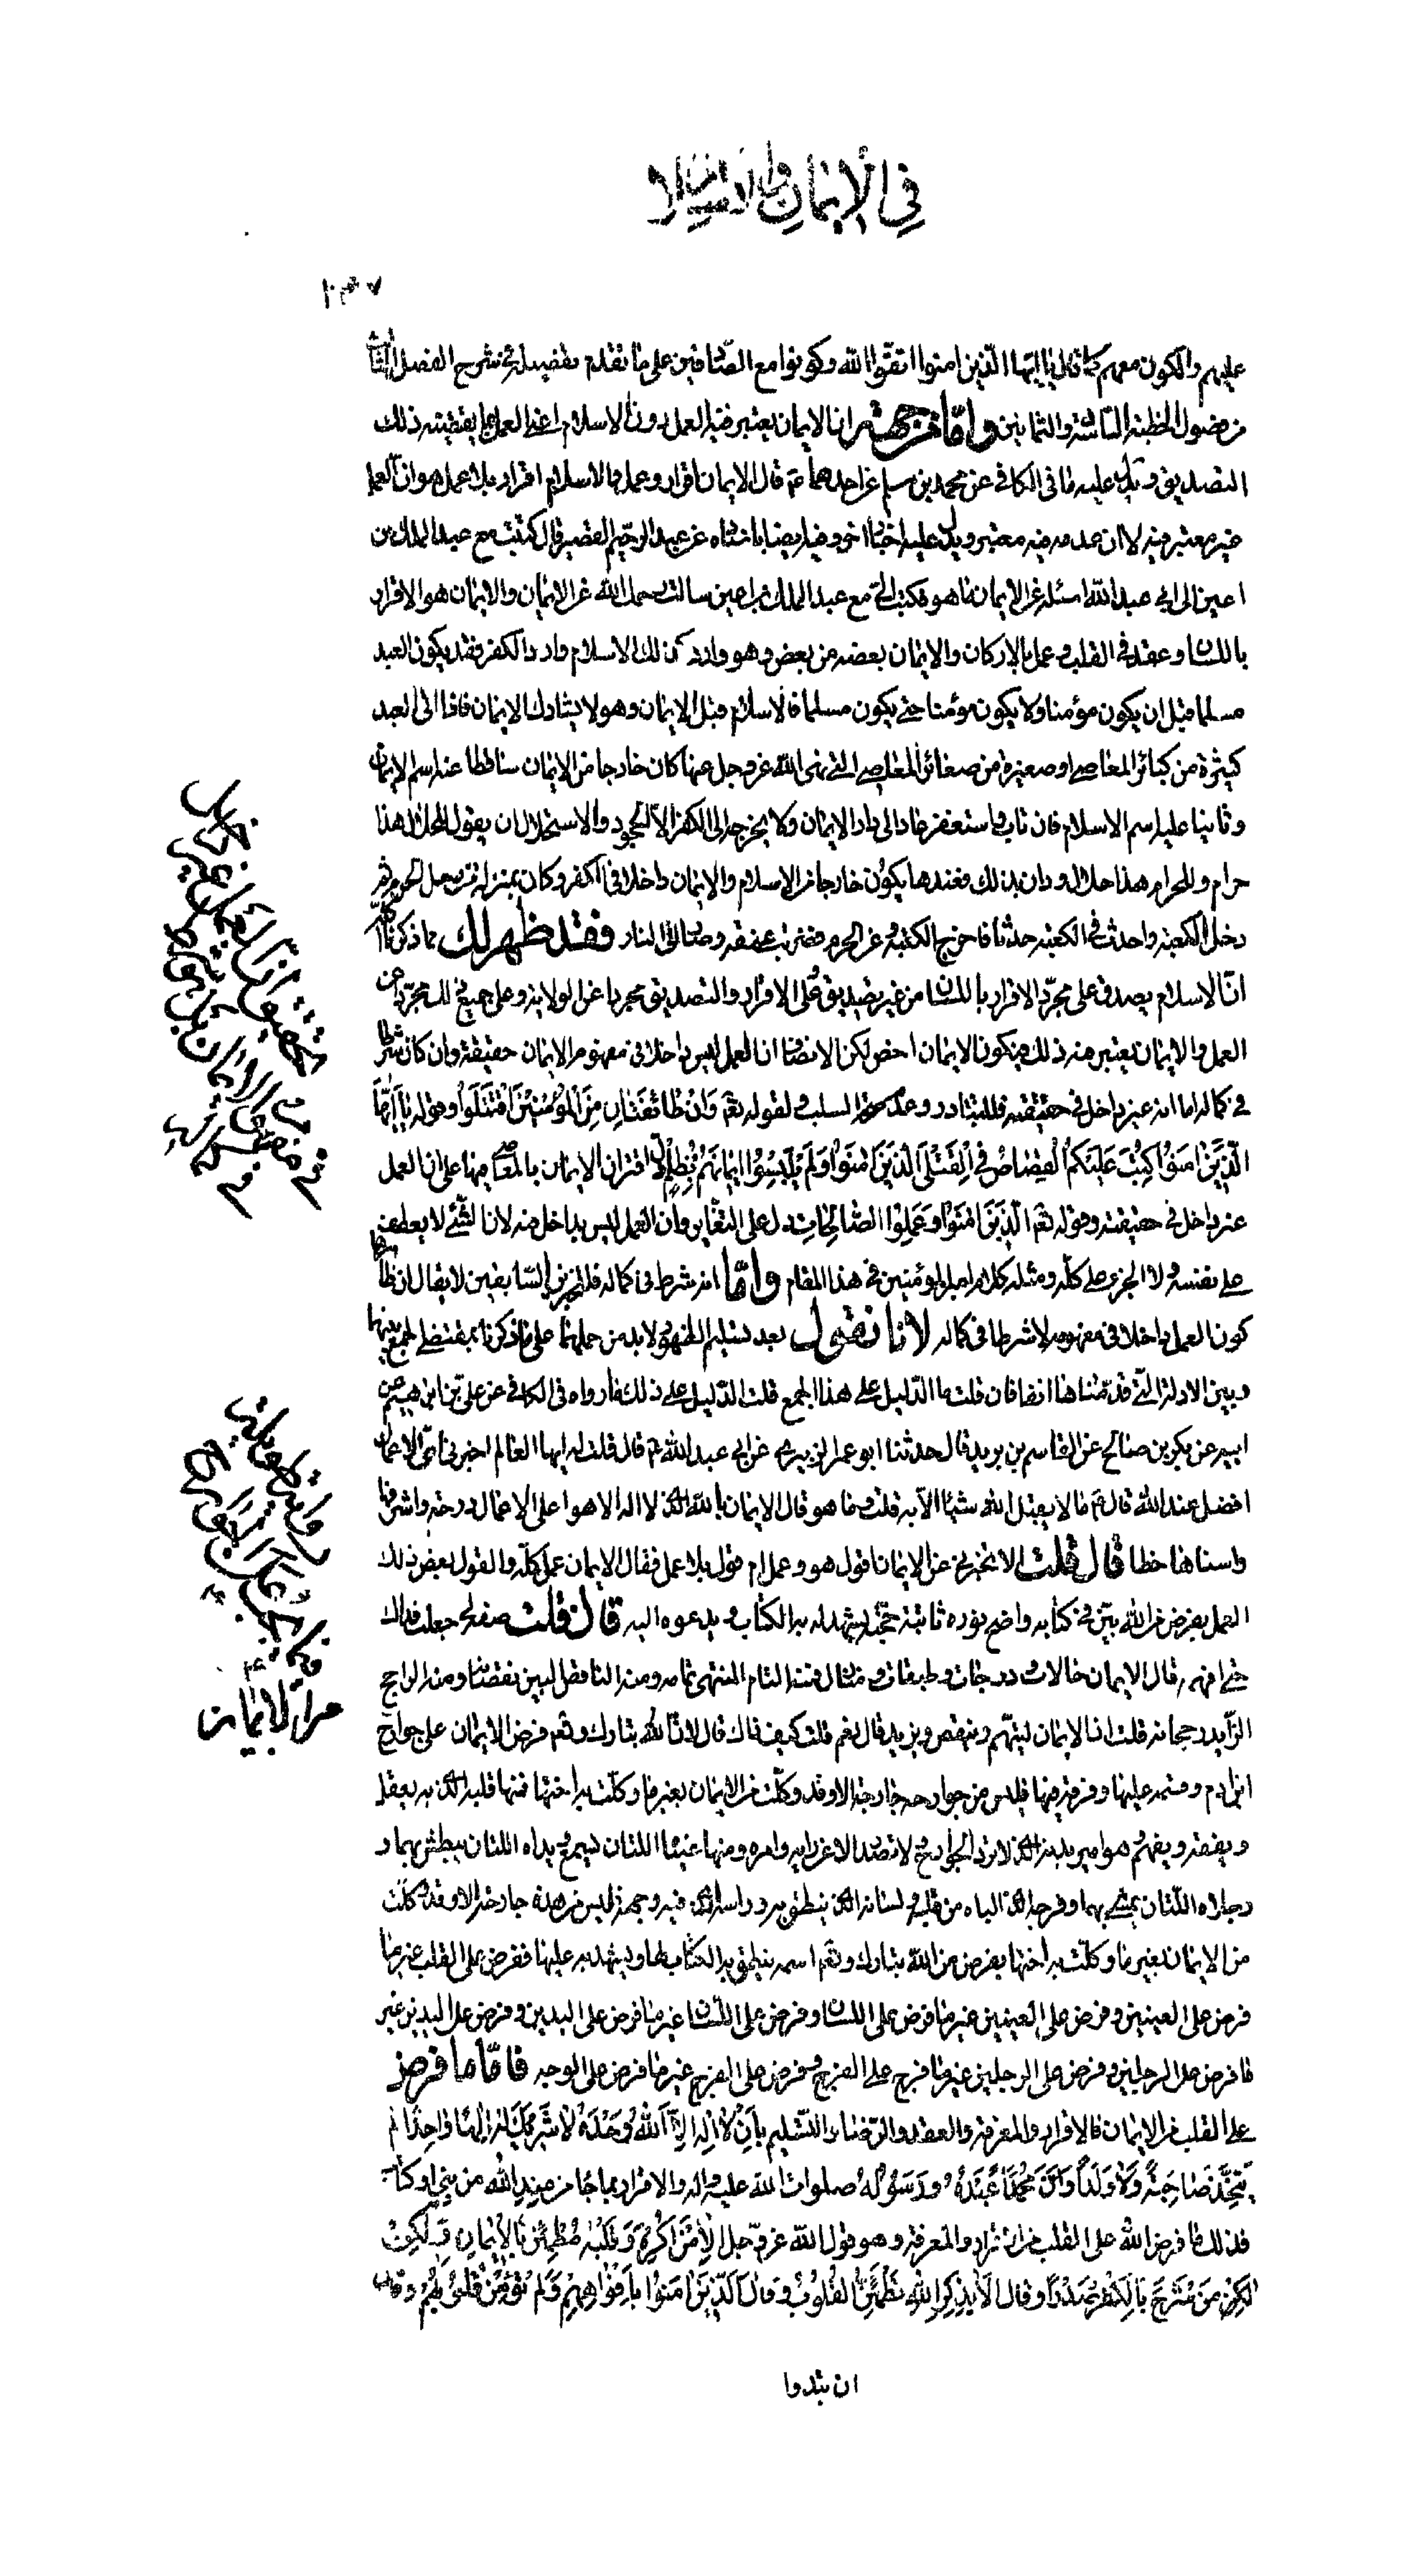 في الإيمان والإسلام
١٠٣٧
عليهم والكون معهم كما قال يا ايّها الّذين امنوا اتقوا اللّه وكونوا مع الصّادقين على ما تقدم تفصيله في شرح الفصل الثالث
من فصول الخطبة السّادسة والثمانين وامّا من جهة ان الايمان يعتبر فيه العمل دون الاسلام اعني العمل بما يقتضيه ذلك
التصديق ويدلّ عليه ما في الكافي عن محمد بن مسلم عن احدهما ع قال الايمان اقرار وعمل والاسلام اقرار بلا عمل هو ان العمل
غير معتبر فيه لا ان عدمه فيه معتبر ويدلّ عليه اخبار اخر وفيه ايضا باسناده عن عبد الرحيم القصير قال كتبت مع عبد الملك بن
اعين الى ابي عبد اللّه اسئله عن الايمان ما هو فكتب اليّ مع عبد الملك بن اعين سالت رحمك اللّه عن الايمان والايمان هو الاقرار
باللسان وعقد في القلب وعمل بالاركان والايمان بعضه من بعض وهو دار وكذلك الاسلام دار والكفر دار فقد يكون العبد
مسلما قبل ان يكون مؤمنا ولا يكون مؤمنا حتى يكون مسلما فالاسلام قبل الايمان وهو لا يشارك الايمان فاذا اتى العبد
كبيرة من كبائر المعاصي او صغيرة من صغائر المعاصي التي نهى اللّه عز وجل عنها كان خارجا من الايمان ساقطا عنه اسم الايمان
وثابتا عليه اسم الاسلام فان تاب واستغفر عاد الى دار الايمان ولا يخرجه الى الكفر الّا الجحود والاستحلال ان يقول للحلال هذا
حرام وللحرام هذا حلال ودان بذلك فعندها يكون خارجا من الاسلام والايمان داخلا في الكفر وكان بمنزلة من دخل الحرم ثم
دخل الكعبة واحدث في الكعبة حدثا فاخرج الكعبة وعن الحرم فضربت عنقه وصار الى النار فقد ظهر لك مما ذكرنا كلّه
انّ الاسلام يصدق على مجرّد الاقرار باللسان من غير تصديق وعلى الاقرار والتصديق مجردا عن الولاية وعلى جميع ذلك مجرّدا عن
العمل والايمان يعتبر فيه ذلك فيكون الايمان اخص لكن الانصاف ان العمل ليس داخلا في مفهوم الايمان حقيقة وان كان شرطا
في كماله اما انه غير داخل في حقيقته فللتبادر وعدم صحة السلب ولقوله تعم وَاِنْ طائفَتانِ مِنَ الْمُؤْمِنينَ اقْتَتَلُوا وقوله يا اَيُّهَا
الَّذينَ امَنُوا كُتِبَ عَلَيْكُمُ الْقِصاصُ فِي الْقَتْلى الَّذينَ امَنُوا وَلَمْ يَلْبِسُوا ايمانَهُمْ بِظُلْمٍ لانّ اقتران الايمان بالمعاصي فيها على ان العمل
غير داخل في حقيقته وقوله تعم الَّذينَ امَنُوا وَعَمِلُوا الصّالِحاتِ دل على التغاير وان العمل ليس بداخل فيه لان الشّيء لا يعطف
على نفسه ولا الجزء على كلّه ومثله كلام امير المؤمنين في هذا المقام وامّا انه شرط في كماله فللخبرين السّابقين لا يقال ان ظاهرهما
كون العمل داخلا في مفهومه لا شرطا في كماله لانا نقول بعد تسليم الظهور لابد من حملهما على ما ذكرنا بمقتضى الجمع بينهما
وبين الادلة الّتي قدّمناها انفا فان قلت ما الدّليل على هذا الجمع قلت الدّليل على ذلك ما رواه في الكافي عن عليّ بن ابراهيم عن
ابيه عن بكر بن صالح عن القاسم بن بريد قال حدثنا ابو عمر الزبيري عن ابي عبد اللّه ع قال قلت له ايها العالم اخبرني ايّ الاعمال
افضل عند اللّه قال ع ما لا يقبل اللّه شيئا الّا به قلت وما هو قال الايمان باللّه الذي لا اله الا هو اعلى الاعمال درجة واشرفها منزلة
واسناها حظا قال قلت الا تخبرني عن الايمان اقول هو وعمل ام قول بلا عمل فقال الايمان عمل كلّه والقول بعض ذلك
العمل بفرض من اللّه بيّن في كتابه واضح نوره ثابتة حجّته يشهد له به الكتاب ويدعوه اليه قال قلت صفه لي جعلت فداك
حتى افهمه قال الايمان حالات ودرجات وطبقات ومنازل فمنه التام المنتهى تمامه ومنه الناقص البين نقصانه ومنه الراجح
الزّايد رجحانه قلت ان الايمان ليتمّ وينقص ويزيد قال نعم قلت كيف ذاك قال لانّ اللّه تبارك وتعم فرض الايمان على جوارح
ابن ادم وقسّمه عليها وفرقه فيها فليس من جوارحه جارحة الا وقد وكّلت من الايمان بغير ما وكّلت به اختها فمنها قلبه الذي به يعقل
ويفقه ويفهم وهو امير بدنه الذي لا ترد الجوارح ولا تصدر الا عن رايه وامره ومنها عيناه اللتان يبصر بهما ويداه اللتان يبطش بهما و
رجلاه اللّتان يمشي بهما وفرجه الذي الباه من قبله ولسانه الذي ينطق به وراسه الذي فيه وجهه فليس من هذه جارحة الا وقد وكّلت
من الايمان بغير ما وكلّت به اختها بفرض من اللّه تبارك وتعم اسمه ينطق به الكتاب لها ويشهد به عليها ففرض على القلب غير ما
فرض على العينين وفرض على العينين غير ما فرض على اللسان وفرض على اللسان غير ما فرض على اليدين وفرض على اليدين غير
ما فرض على الرجلين وفرض على الرجلين غير ما فرض على الفرج وفرض على الفرج غير ما فرض على الوجه فامّا ما فرض
على القلب من الايمان فالاقرار والمعرفة والعقد والرّضا والتّسليم بِاَنْ لا اِلهَ اِلَّا اللّهُ وَحْدَهُ لا شَريكَ لَهُ اِلهًا واحِدًا لم
يَتَّخِذْ صاحِبَةً وَلا وَلَداً وَاَنَّ مُحَمَّداً عَبْدُهُ وَرَسُولُهُ صلوات اللّه عليه واله والاقرار بما جاء من عند اللّه من نبيّ او كتاب
فذلك ما فرض اللّه على القلب من الاقرار والمعرفة وهو قول اللّه عزّ وجل اِلّا مَنْ اُكْرِهَ وَقَلْبُهُ مُطْمَئِنٌّ بِالْايمانِ وَلكِنْ
مَنْ شَرَحَ بِالْكُفْرِ صَدْراً وقال اَلا بِذِكْرِ اللّهِ تَطْمَئِنُّ الْقُلُوبُ وقال الَّذينَ امَنُوا بِاَفْواهِهِمْ وَلَمْ تُؤْمِنْ قُلُوبُهُمْ وقال
ان تبدوا
تحقيق ان العمل غير داخل
في مفهوم الايمان بل شرط
في كماله
مراتب الايمان